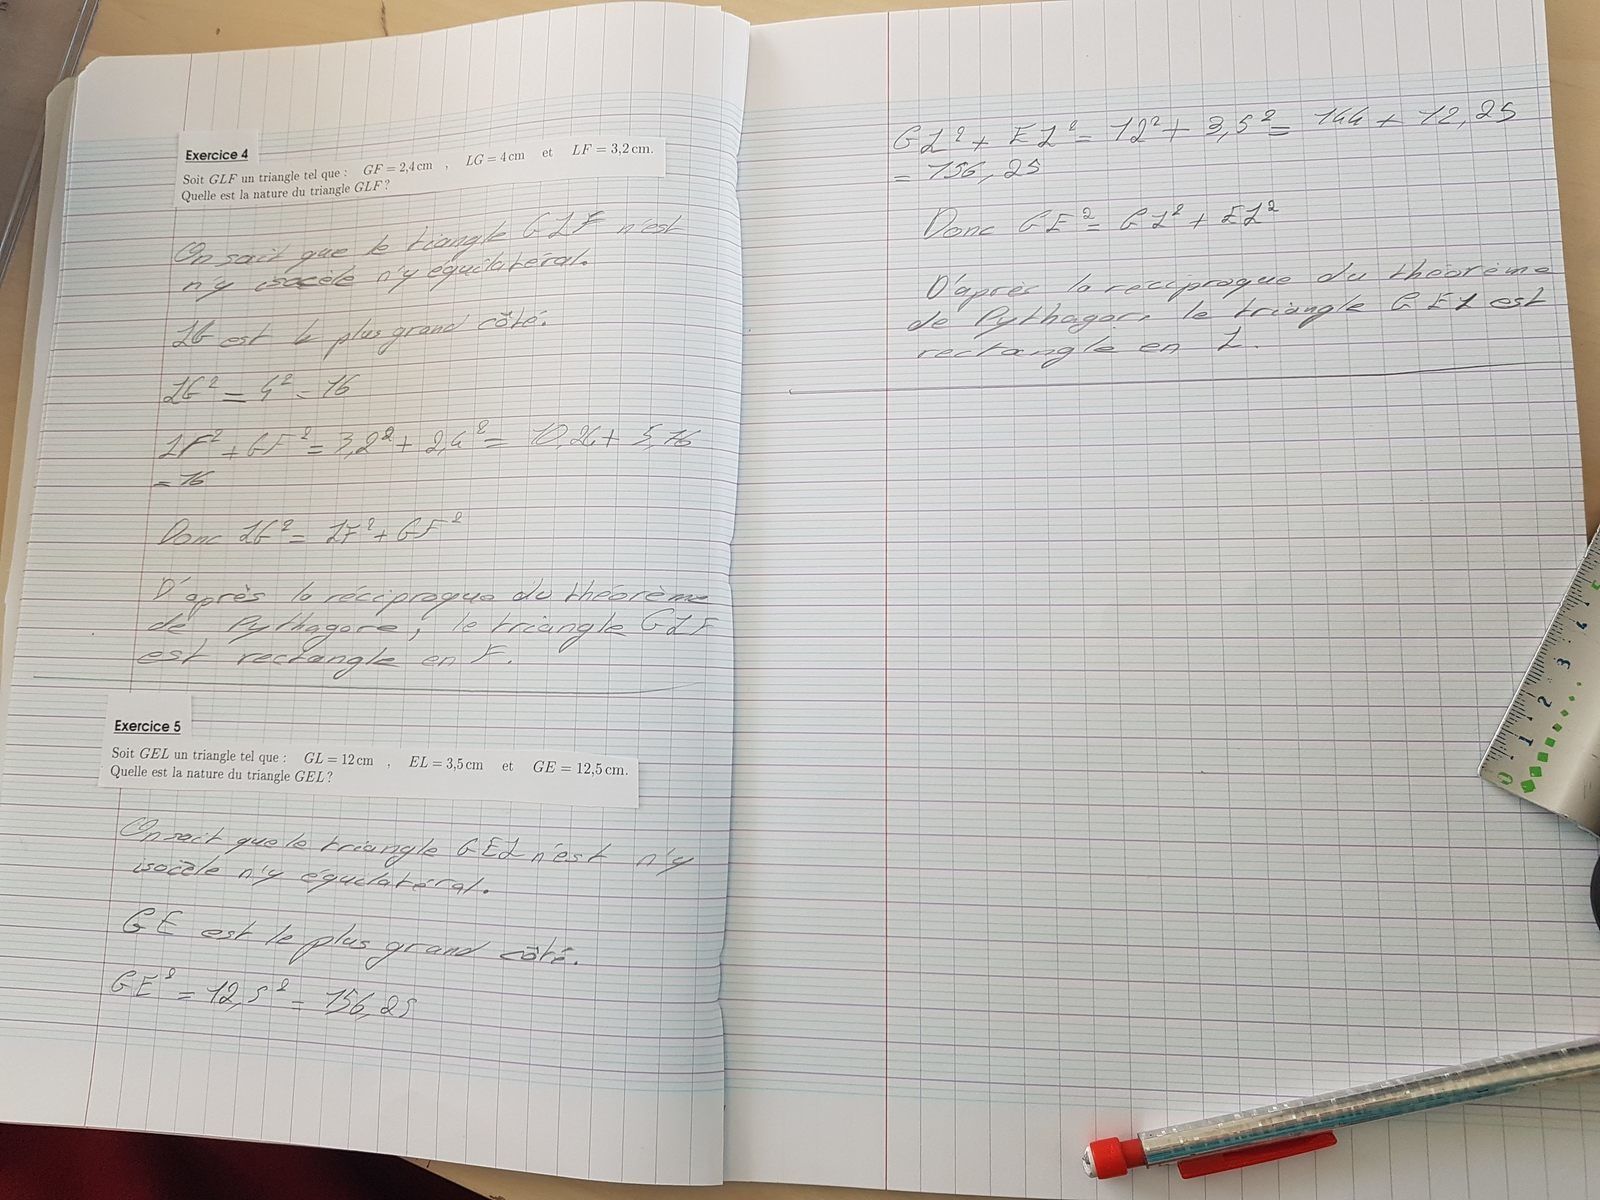 Exercice 4
Soit GLF un triangle tel que : GF = 2,4 cm , LG = 4 cm et LF = 3,2 cm.
Quelle est la nature du triangle GLF ?
On sait que le triangle GLF n'est
n'y isocèle n'y équilatéral.
LG est le plus grand côté.
LG² = 4² = 16
LF² + GF² = 3,2² + 2,4² = 10,24 + 5,76
= 16
Donc LG² = LF² + GF²
D'après la réciproque du théorème
de Pythagore, le triangle GLF
est rectangle en F.
Exercice 5
Soit GEL un triangle tel que : GL = 12 cm , EL = 3,5 cm et GE = 12,5 cm.
Quelle est la nature du triangle GEL ?
On sait que le triangle GEL n'est n'y
isocèle n'y équilatéral.
GE est le plus grand côté.
GE² = 12,5² = 156,25
GL² + EL² = 12² + 3,5² = 144 + 12,25
= 156,25
Donc GE² = GL² + EL²
D'après la réciproque du théorème
de Pythagore, le triangle GEL est
rectangle en L.
0 1 2 3 4 5